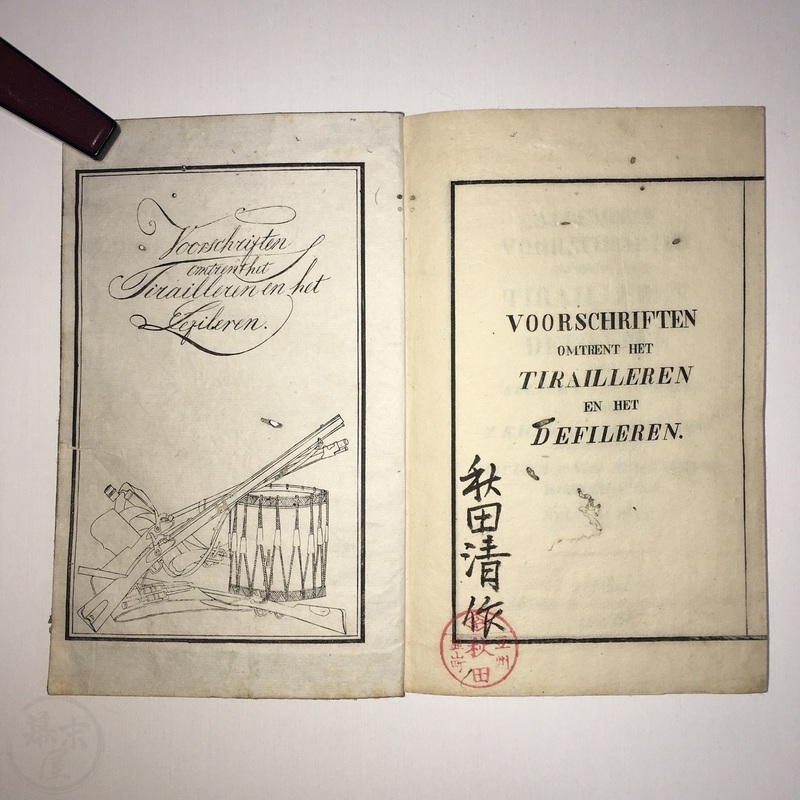 Voorschriften
omtrent het
Tirailleren en het
Defileren.
VOORSCHRIFTEN
OMTRENT HET
TIRAILLEREN
EN HET
DEFILEREN.
秋田清作
秋田